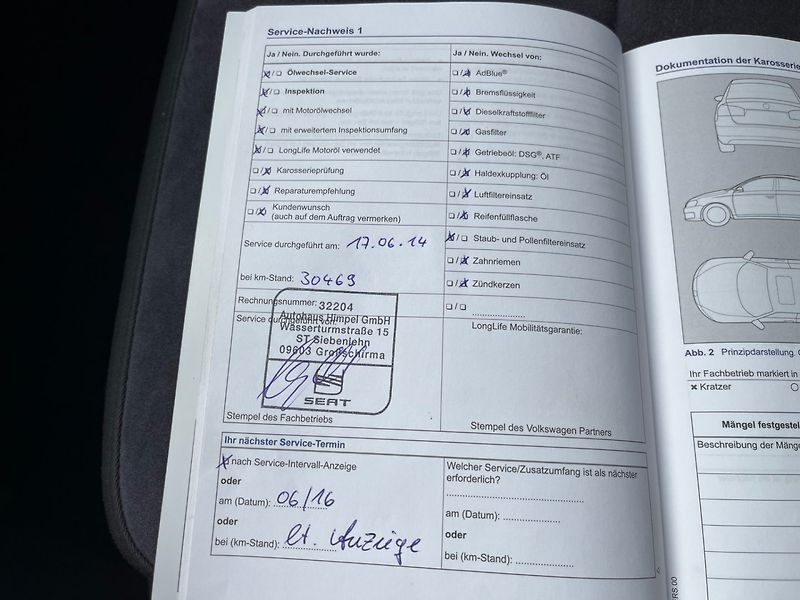 Service-Nachweis 1
Ja / Nein. Durchgeführt wurde:
☒/☐ Ölwechsel-Service
☒/☐ Inspektion
☒/☐ mit Motorölwechsel
☒/☐ mit erweitertem Inspektionsumfang
☒/☐ LongLife Motoröl verwendet
☐/☒ Karosserieprüfung
☐/☒ Reparaturempfehlung
☐/☒ Kundenwunsch
(auch auf dem Auftrag vermerken)
Service durchgeführt am: 17.06.14
bei km-Stand: 30469
Rechnungsnummer:
Service durchgeführt von:
32204
Autohaus Himpel GmbH
Wasserturmstraße 15
ST Siebenlehn
09603 Großschirma
SEAT
Stempel des Fachbetriebs
Ja / Nein. Wechsel von:
☐/☒ AdBlue®
☐/☒ Bremsflüssigkeit
☐/☒ Dieselkraftstofffilter
☐/☒ Gasfilter
☐/☒ Getriebeöl: DSG®, ATF
☐/☒ Haldexkupplung: Öl
☐/☒ Luftfiltereinsatz
☐/☒ Reifenfüllflasche
☒/☐ Staub- und Pollenfiltereinsatz
☐/☒ Zahnriemen
☐/☒ Zündkerzen
☐/☐ ......................
LongLife Mobilitätsgarantie:
Stempel des Volkswagen Partners
Ihr nächster Service-Termin
☒ nach Service-Intervall-Anzeige
oder
am (Datum): 06/16
oder
bei (km-Stand): lt. Anzeige
Welcher Service/Zusatzumfang ist als nächster
erforderlich?
am (Datum): ..................
oder
bei (km-Stand): ..................
Dokumentation der Karosserie
Abb. 2 Prinzipdarstellung.
Ihr Fachbetrieb markiert in
✖ Kratzer
Mängel festgestel
Beschreibung der Mänge